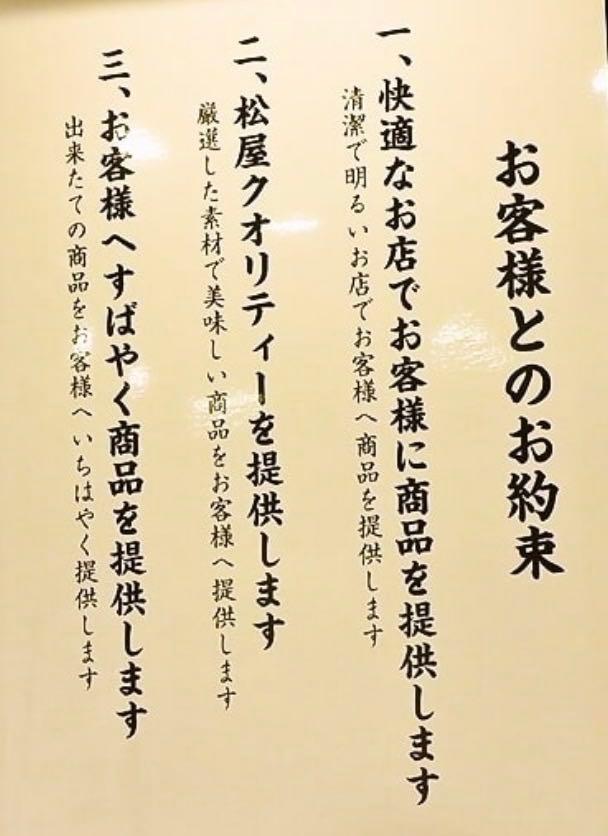 お客様とのお約束
一、快適なお店でお客様に商品を提供します
清潔で明るいお店でお客様へ商品を提供します
二、松屋クオリティーを提供します
厳選した素材で美味しい商品をお客様へ提供します
三、お客様へすばやく商品を提供します
出来たての商品をお客様へいちはやく提供します